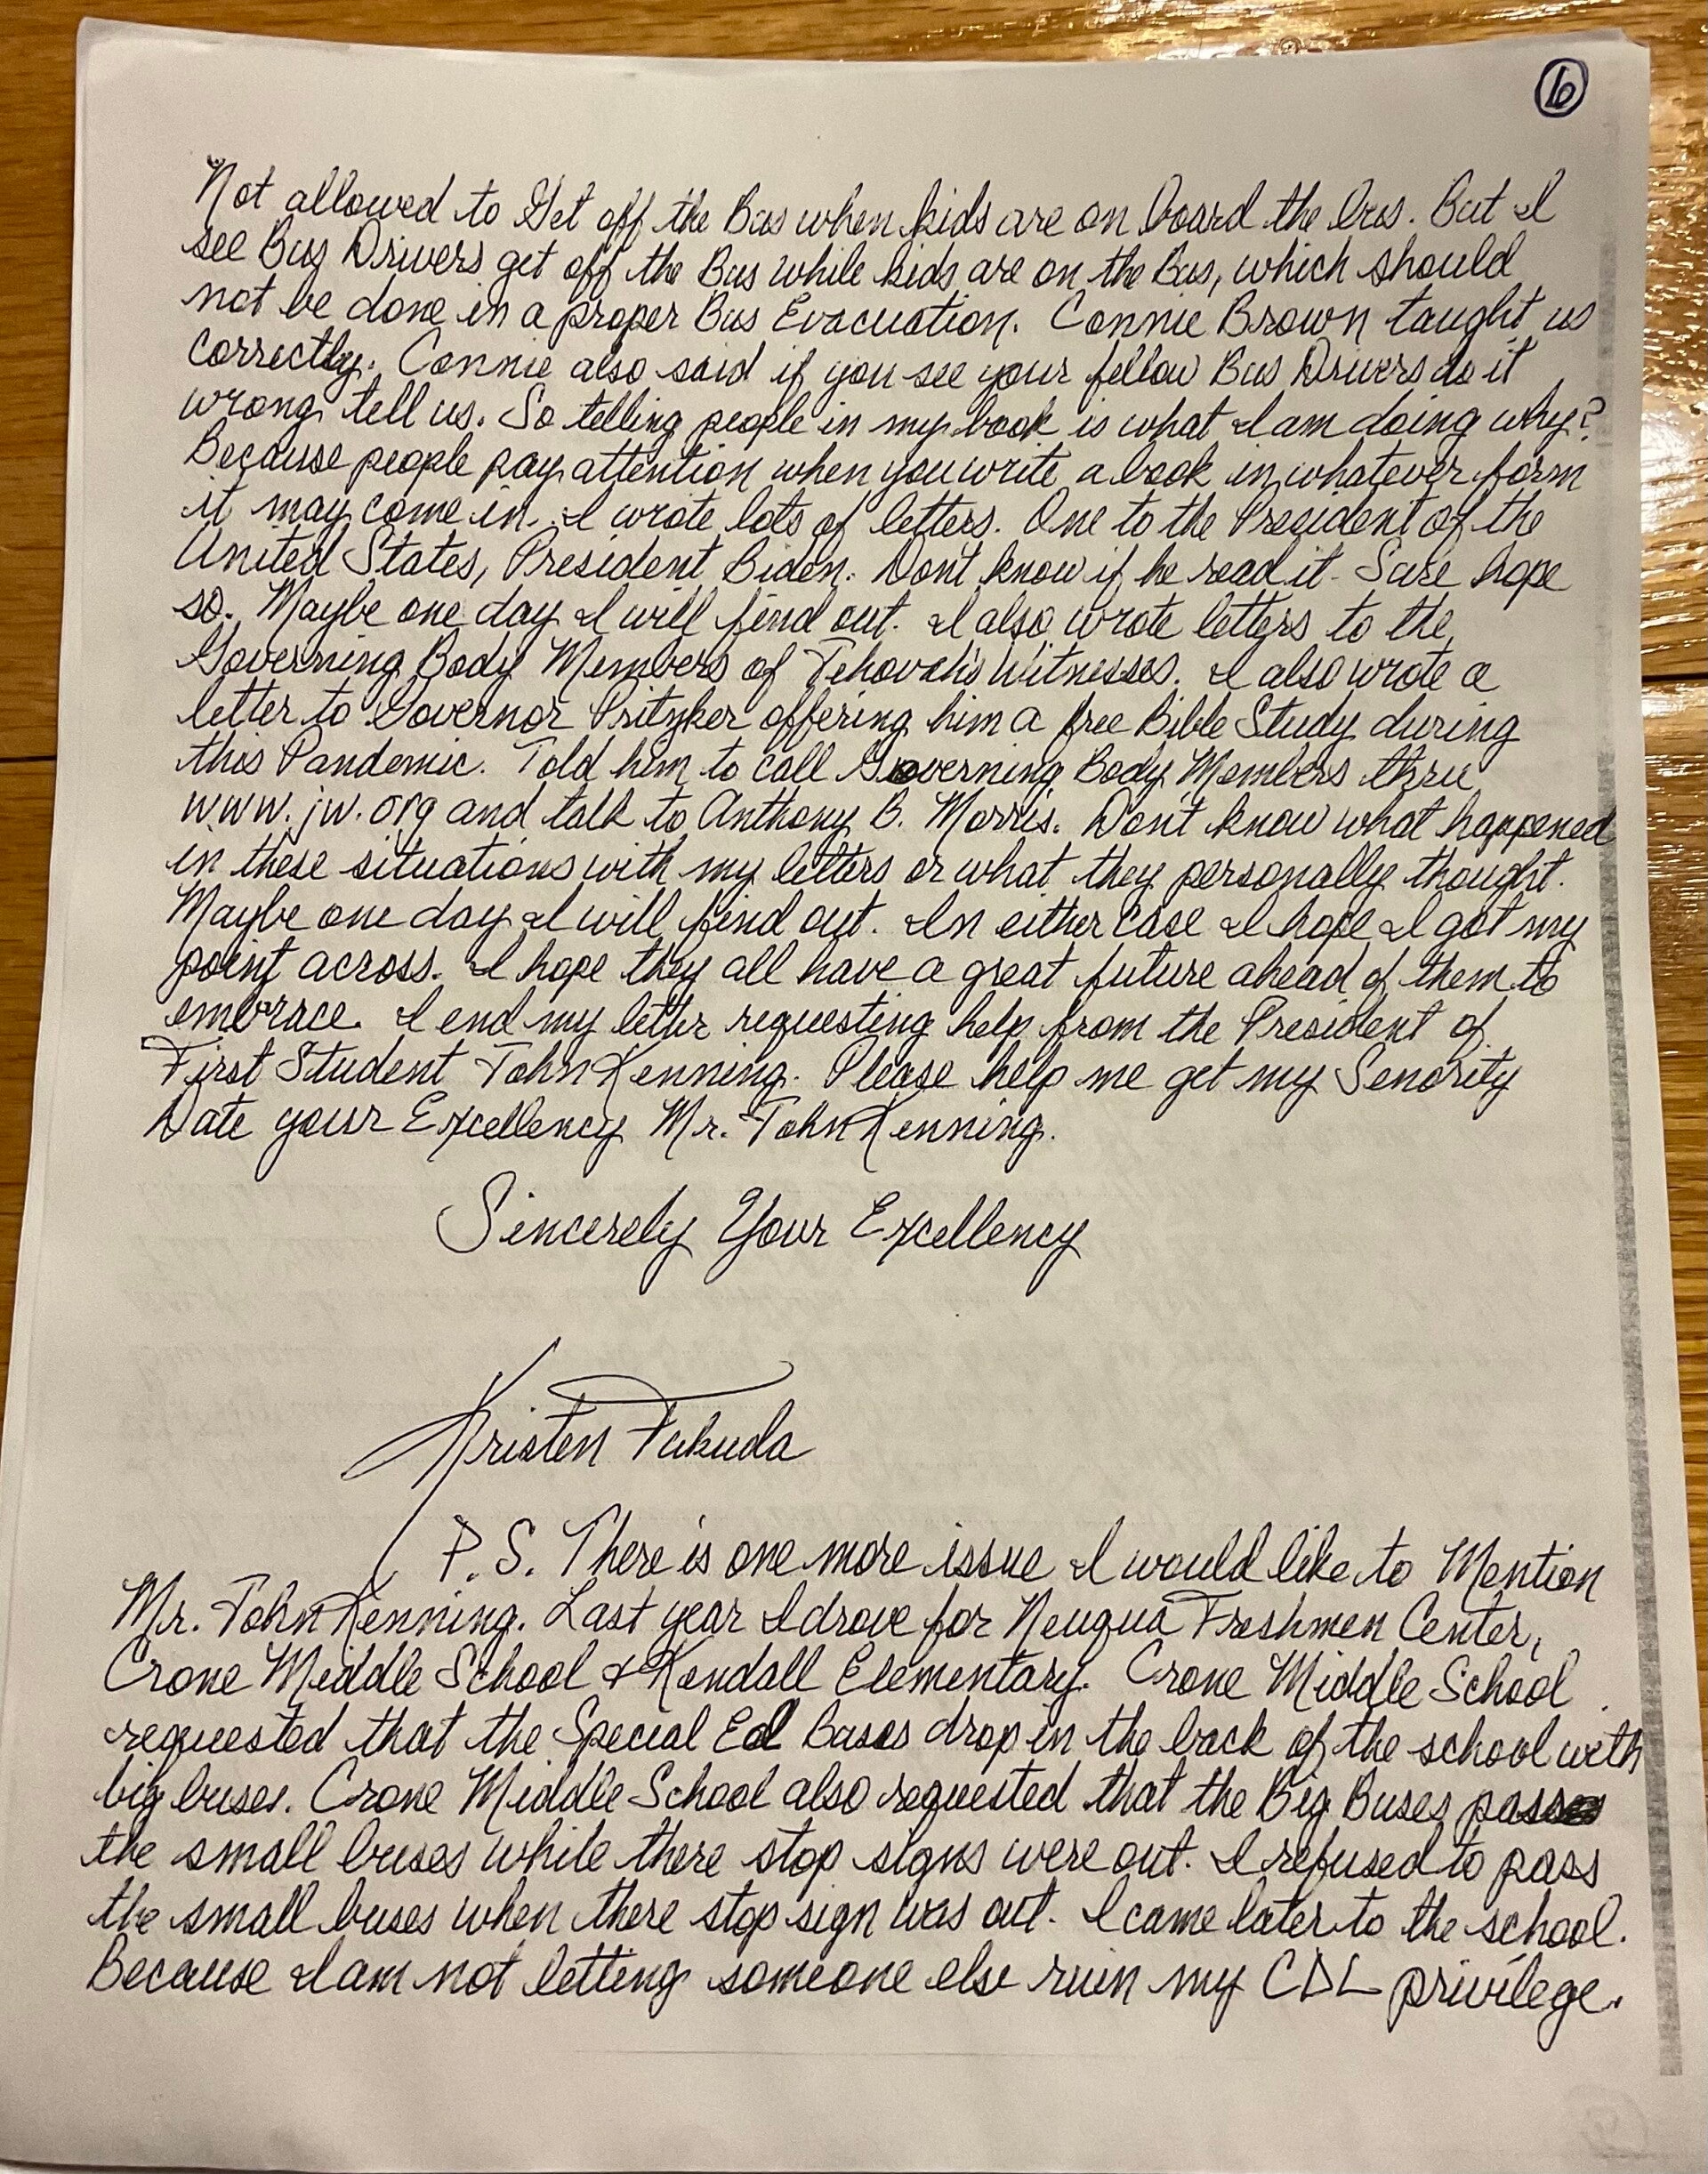 6
Not allowed to Get off the Bus when kids are on board the bus. But I
see Bus Drivers get off the Bus while kids are on the Bus, which should
not be done in a proper Bus Evacuation. Connie Brown taught us
correctly. Connie also said if you see your fellow Bus Drivers do it
wrong tell us. So telling people in my book is what I am doing why?
Because people pay attention when you write a book in whatever form
it may come in. I wrote lots of letters. One to the President of the
United States, President Biden. Don't know if he read it. Sure hope
so. Maybe one day I will find out. I also wrote letters to the
Governing Body Members of Jehovah's Witnesses. I also wrote a
letter to Governor Pritzker offering him a free Bible Study during
this Pandemic. Told him to call Governing Body Members thru
www.jw.org and talk to Anthony B. Morris. Don't know what happened
in these situations with my letters or what they personally thought.
Maybe one day I will find out. In either case I hope I got my
point across. I hope they all have a great future ahead of them to
embrace. I end my letter requesting help from the President of
First Student John Kenning. Please help me get my Senority
Date your Excellency Mr. John Kenning.
Sincerely Your Excellency
Kristen Fukuda
P.S. There is one more issue I would like to Mention
Mr. John Kenning. Last year I drove for Neuqua Freshmen Center,
Crone Middle School & Kendall Elementary. Crone Middle School
requested that the Special Ed Buses drop in the back of the school with
big buses. Crone Middle School also requested that the Big Buses pass
the small buses while there stop signs were out. I refused to pass
the small buses when there stop sign was out. I came later to the school.
Because I am not letting someone else ruin my CDL privilege.